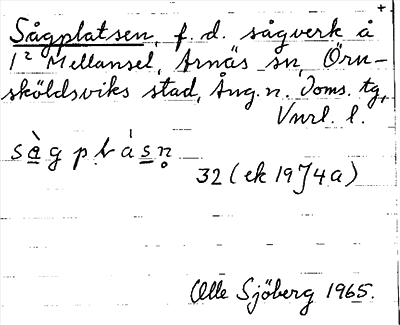 Sågplatsen, f. d. sågverk å
1² Mellansel, Arnäs sn, Örn-
sköldsviks stad, Ång. n. Doms. tg,
Vnrl. l.
sàgplàsn̥
32 (ek 19J4a)
Olle Sjöberg 1965.